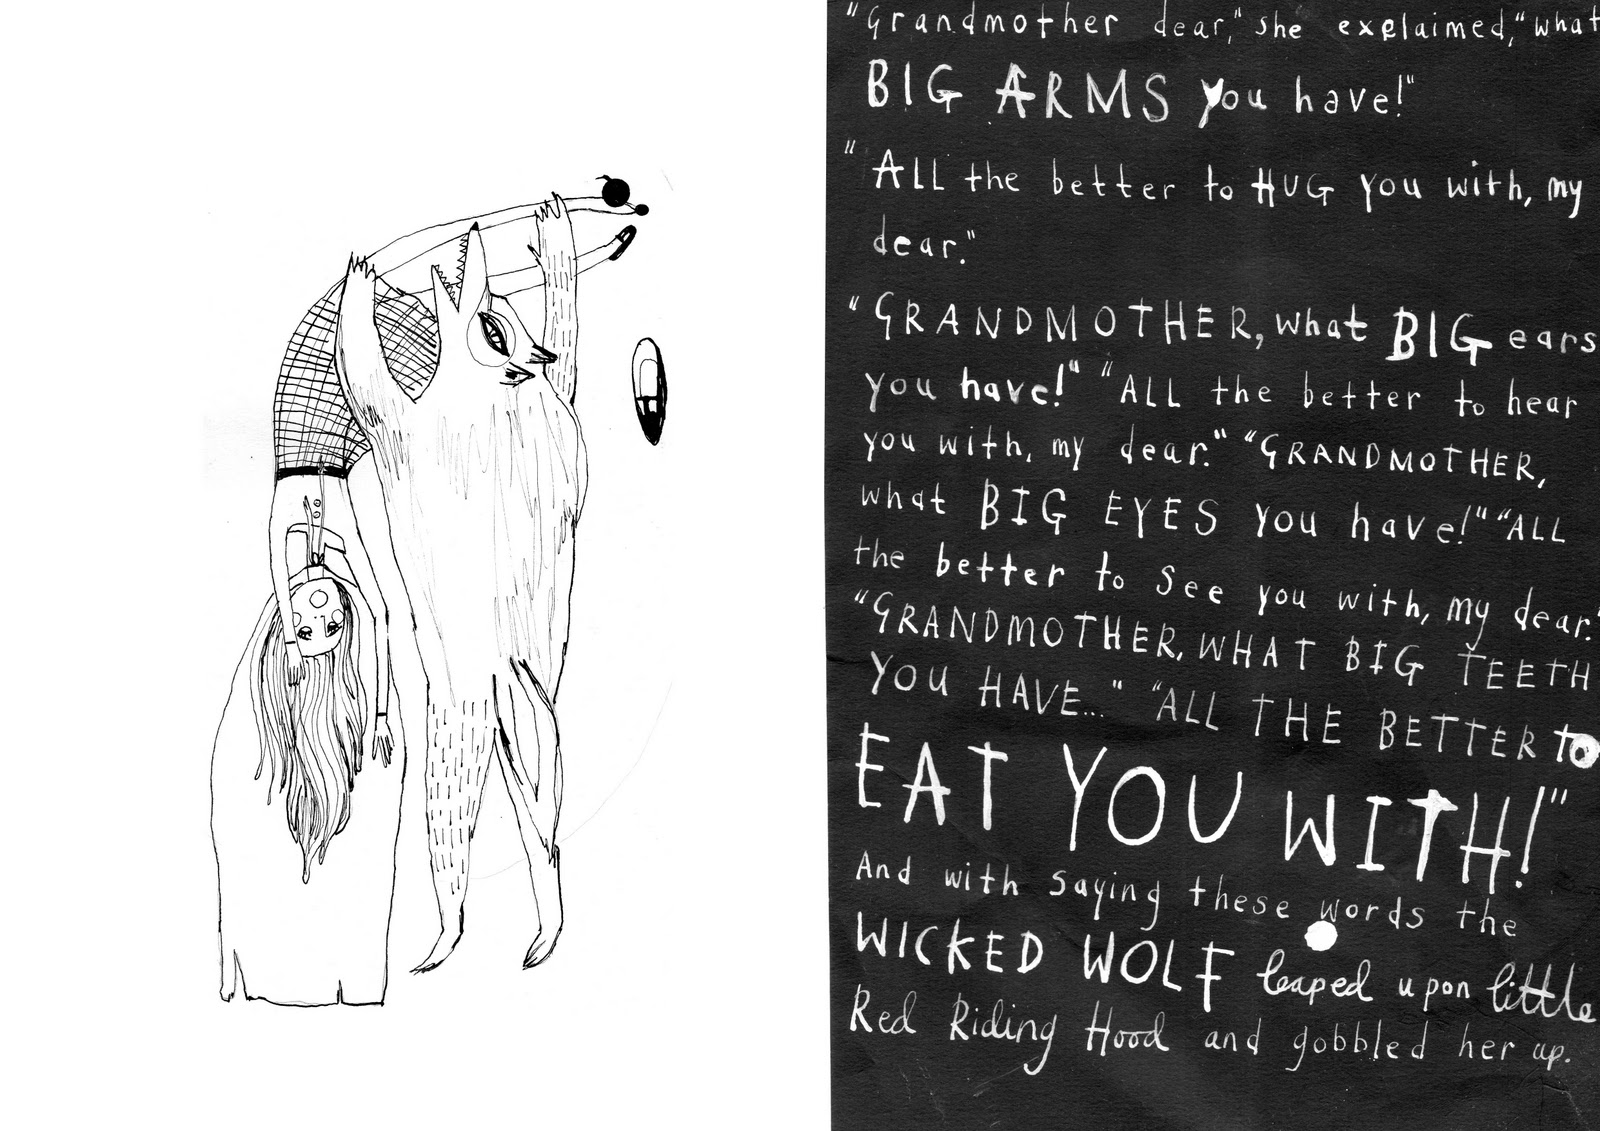 "Grandmother dear," she explaimed, "what
BIG ARMS you have!"
"ALL the better to HUG you with, my
dear."
"GRANDMOTHER, what BIG ears
you have!" "ALL the better to hear
you with, my dear." "GRANDMOTHER,
what BIG EYES you have!" "ALL
the better to See you with, my dear."
"GRANDMOTHER, WHAT BIG TEETH
YOU HAVE..." "ALL THE BETTER to
EAT YOU WITH!"
And with saying these words the
WICKED WOLF leaped upon little
Red Riding Hood and gobbled her up.